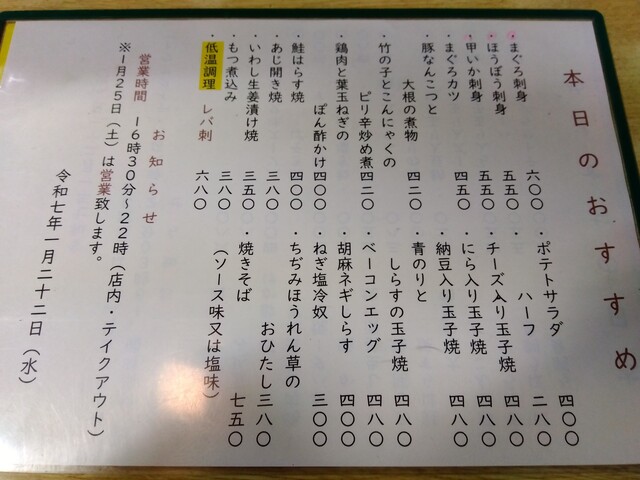 本日のおすすめ
・まぐろ刺身 六〇〇
・ほうぼう刺身 五五〇
・甲いか刺身 五五〇
・まぐろカツ 四五〇
・豚なんこつと
大根の煮物 四二〇
・竹の子とこんにゃくの
ピリ辛炒め煮 四二〇
・鶏肉と葉玉ねぎの
ぽん酢かけ 四〇〇
・鮭はらす焼 四〇〇
・あじ開き焼 三八〇
・いわし生姜漬け焼 三五〇
・もつ煮込み 三八〇
・低温調理 レバ刺 六八〇
・ポテトサラダ 四〇〇
ハーフ 二八〇
・チーズ入り玉子焼 四八〇
・にら入り玉子焼 四八〇
・納豆入り玉子焼 四八〇
・青のりと
しらすの玉子焼 四八〇
・ベーコンエッグ 四八〇
・胡麻ネギしらす 四〇〇
・ねぎ塩冷奴 三〇〇
・ちぢみほうれん草の
おひたし 三八〇
・焼きそば
(ソース味又は塩味) 七五〇
お知らせ
営業時間 16時30分~22時(店内・テイクアウト)
※1月25日(土)は営業致します。
令和七年一月二十二日(水)